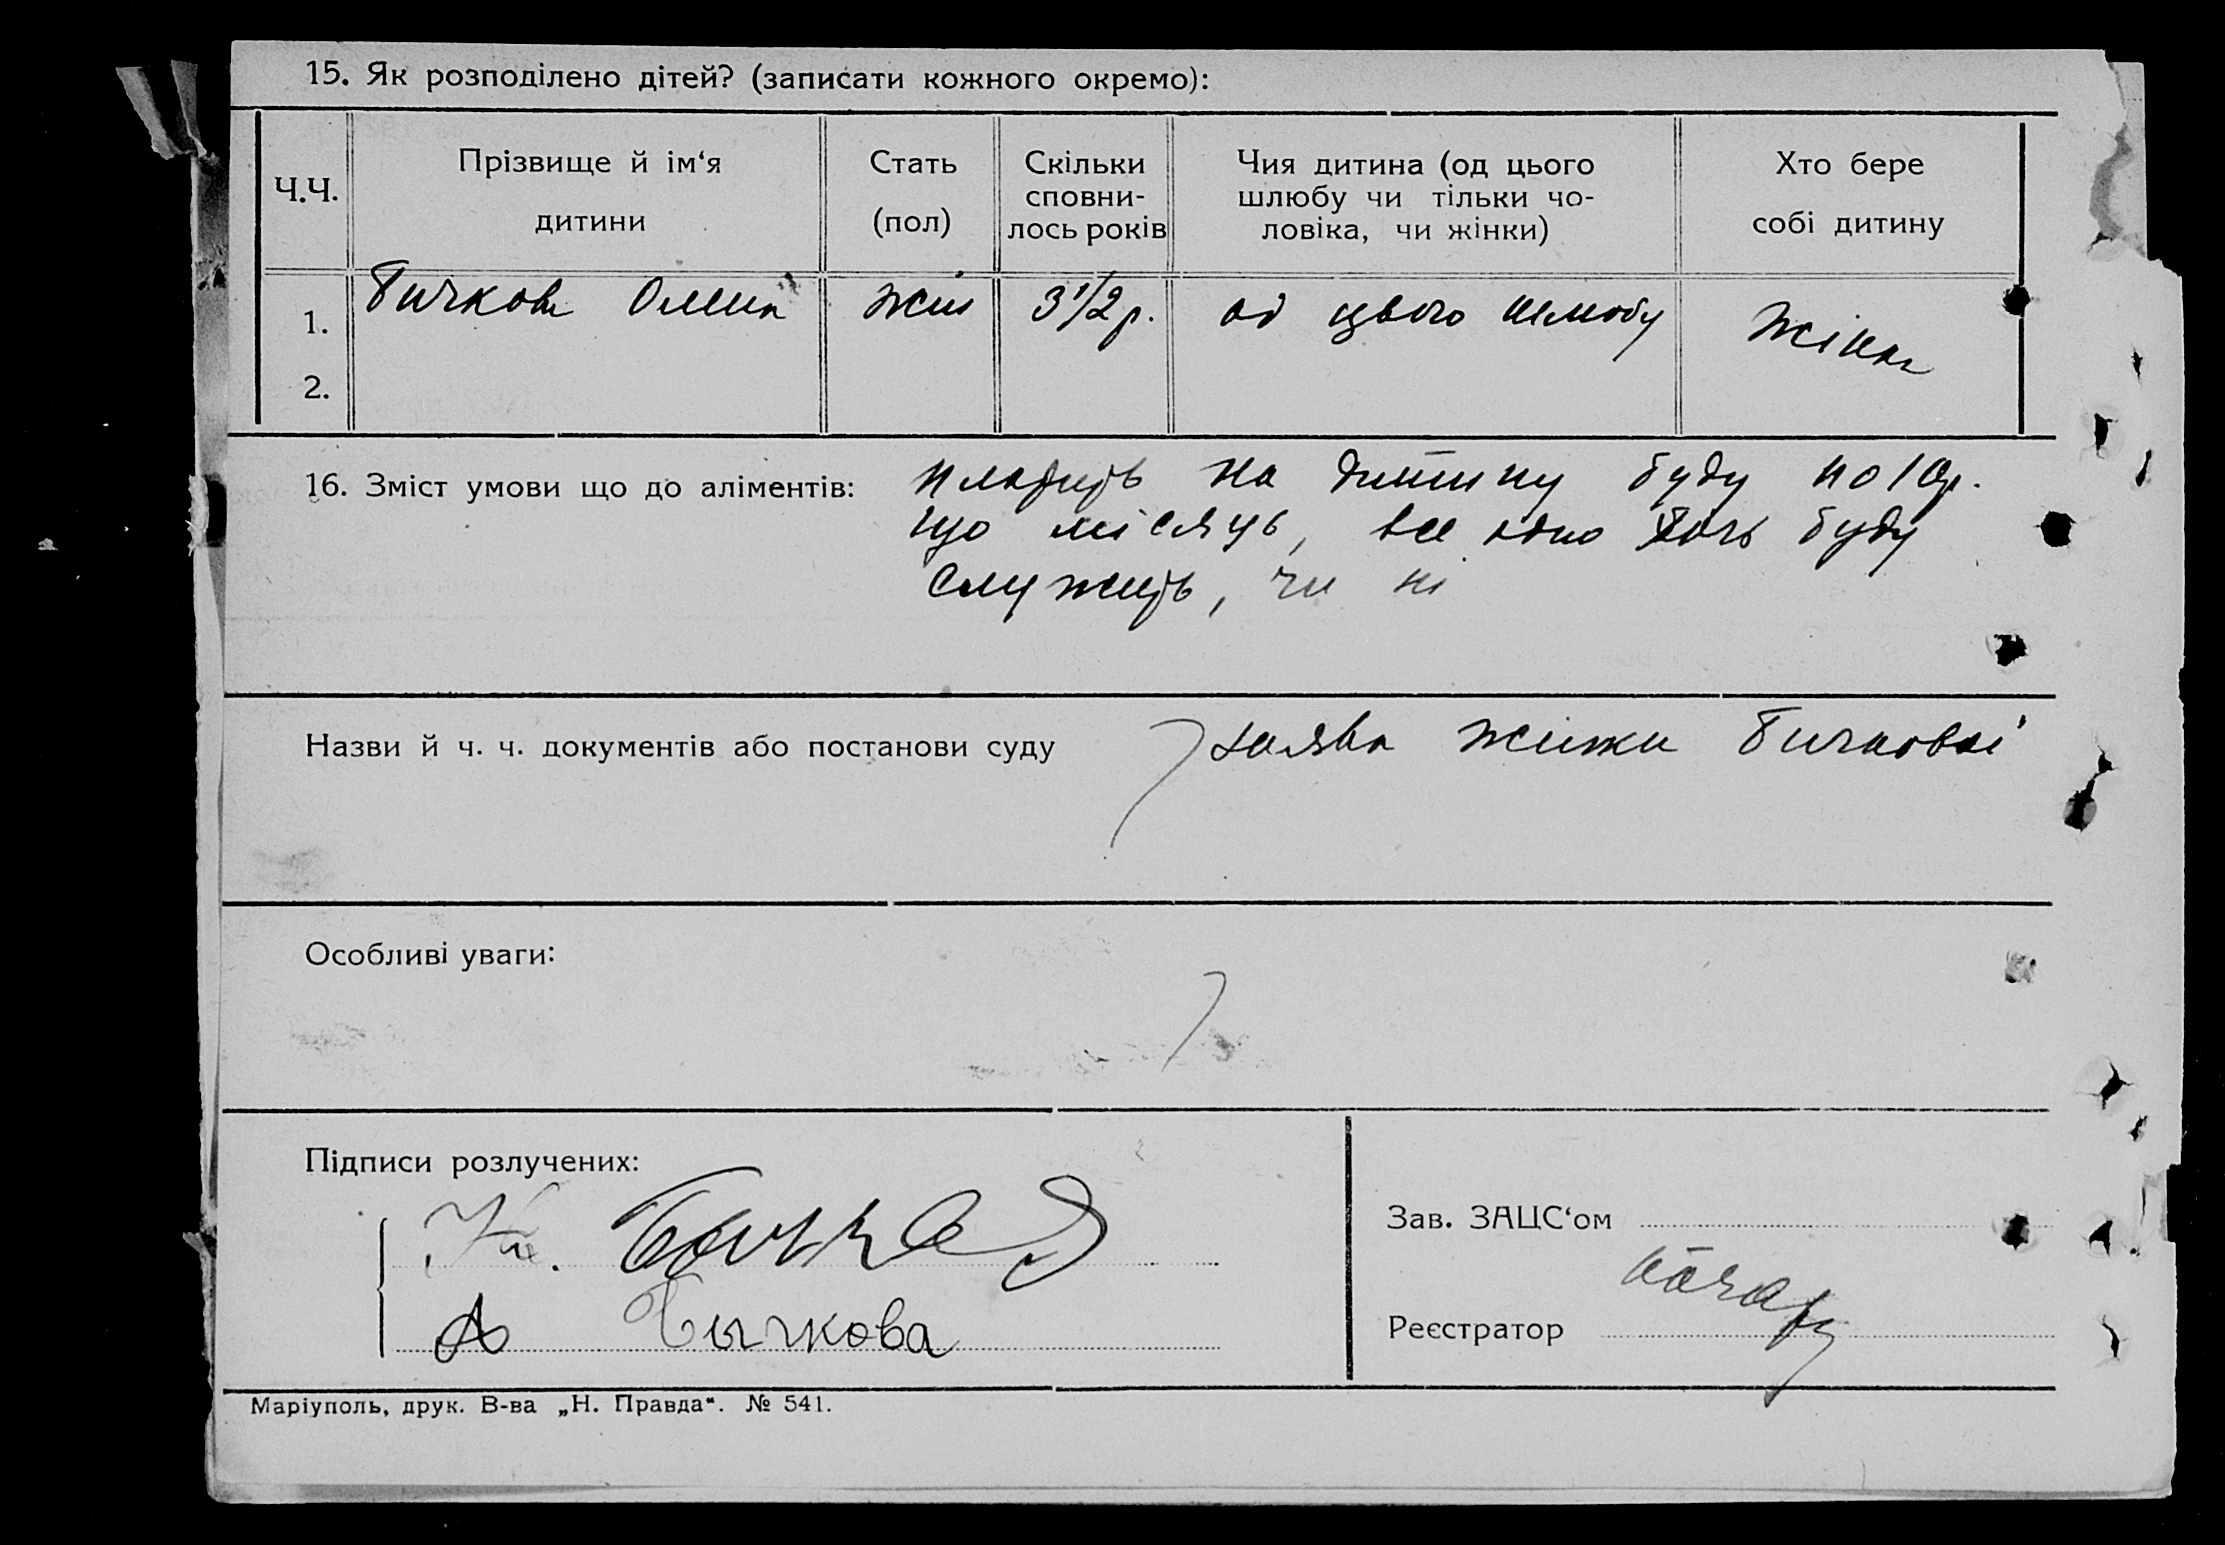 15. Як розподілено дітей? (записати кожного окремо):
Ч.Ч.
Прізвище й ім‘я
дитини
Стать
(пол)
Скільки
сповни-
лось років
Чия дитина (од цього
шлюбу чи тільки чо-
ловіка, чи жінки)
Хто бере
собі дитину
1. Бичкова жін 3 1/2 р. од цього шлюбу жінка
2.
16. Зміст умови що до аліментів: платить на дитину буду по 10 р.
що місяць, все одно чи буду
служить, чи ні
Назви й ч. ч. документів або постанови суду заява жінки Бичкової
Особливі уваги:
Підписи розлучених:
Бичков
А Бычкова
Зав. ЗАЦС‘ом
Реєстратор
Маріуполь, друк. В-ва „Н. Правда“. № 541.